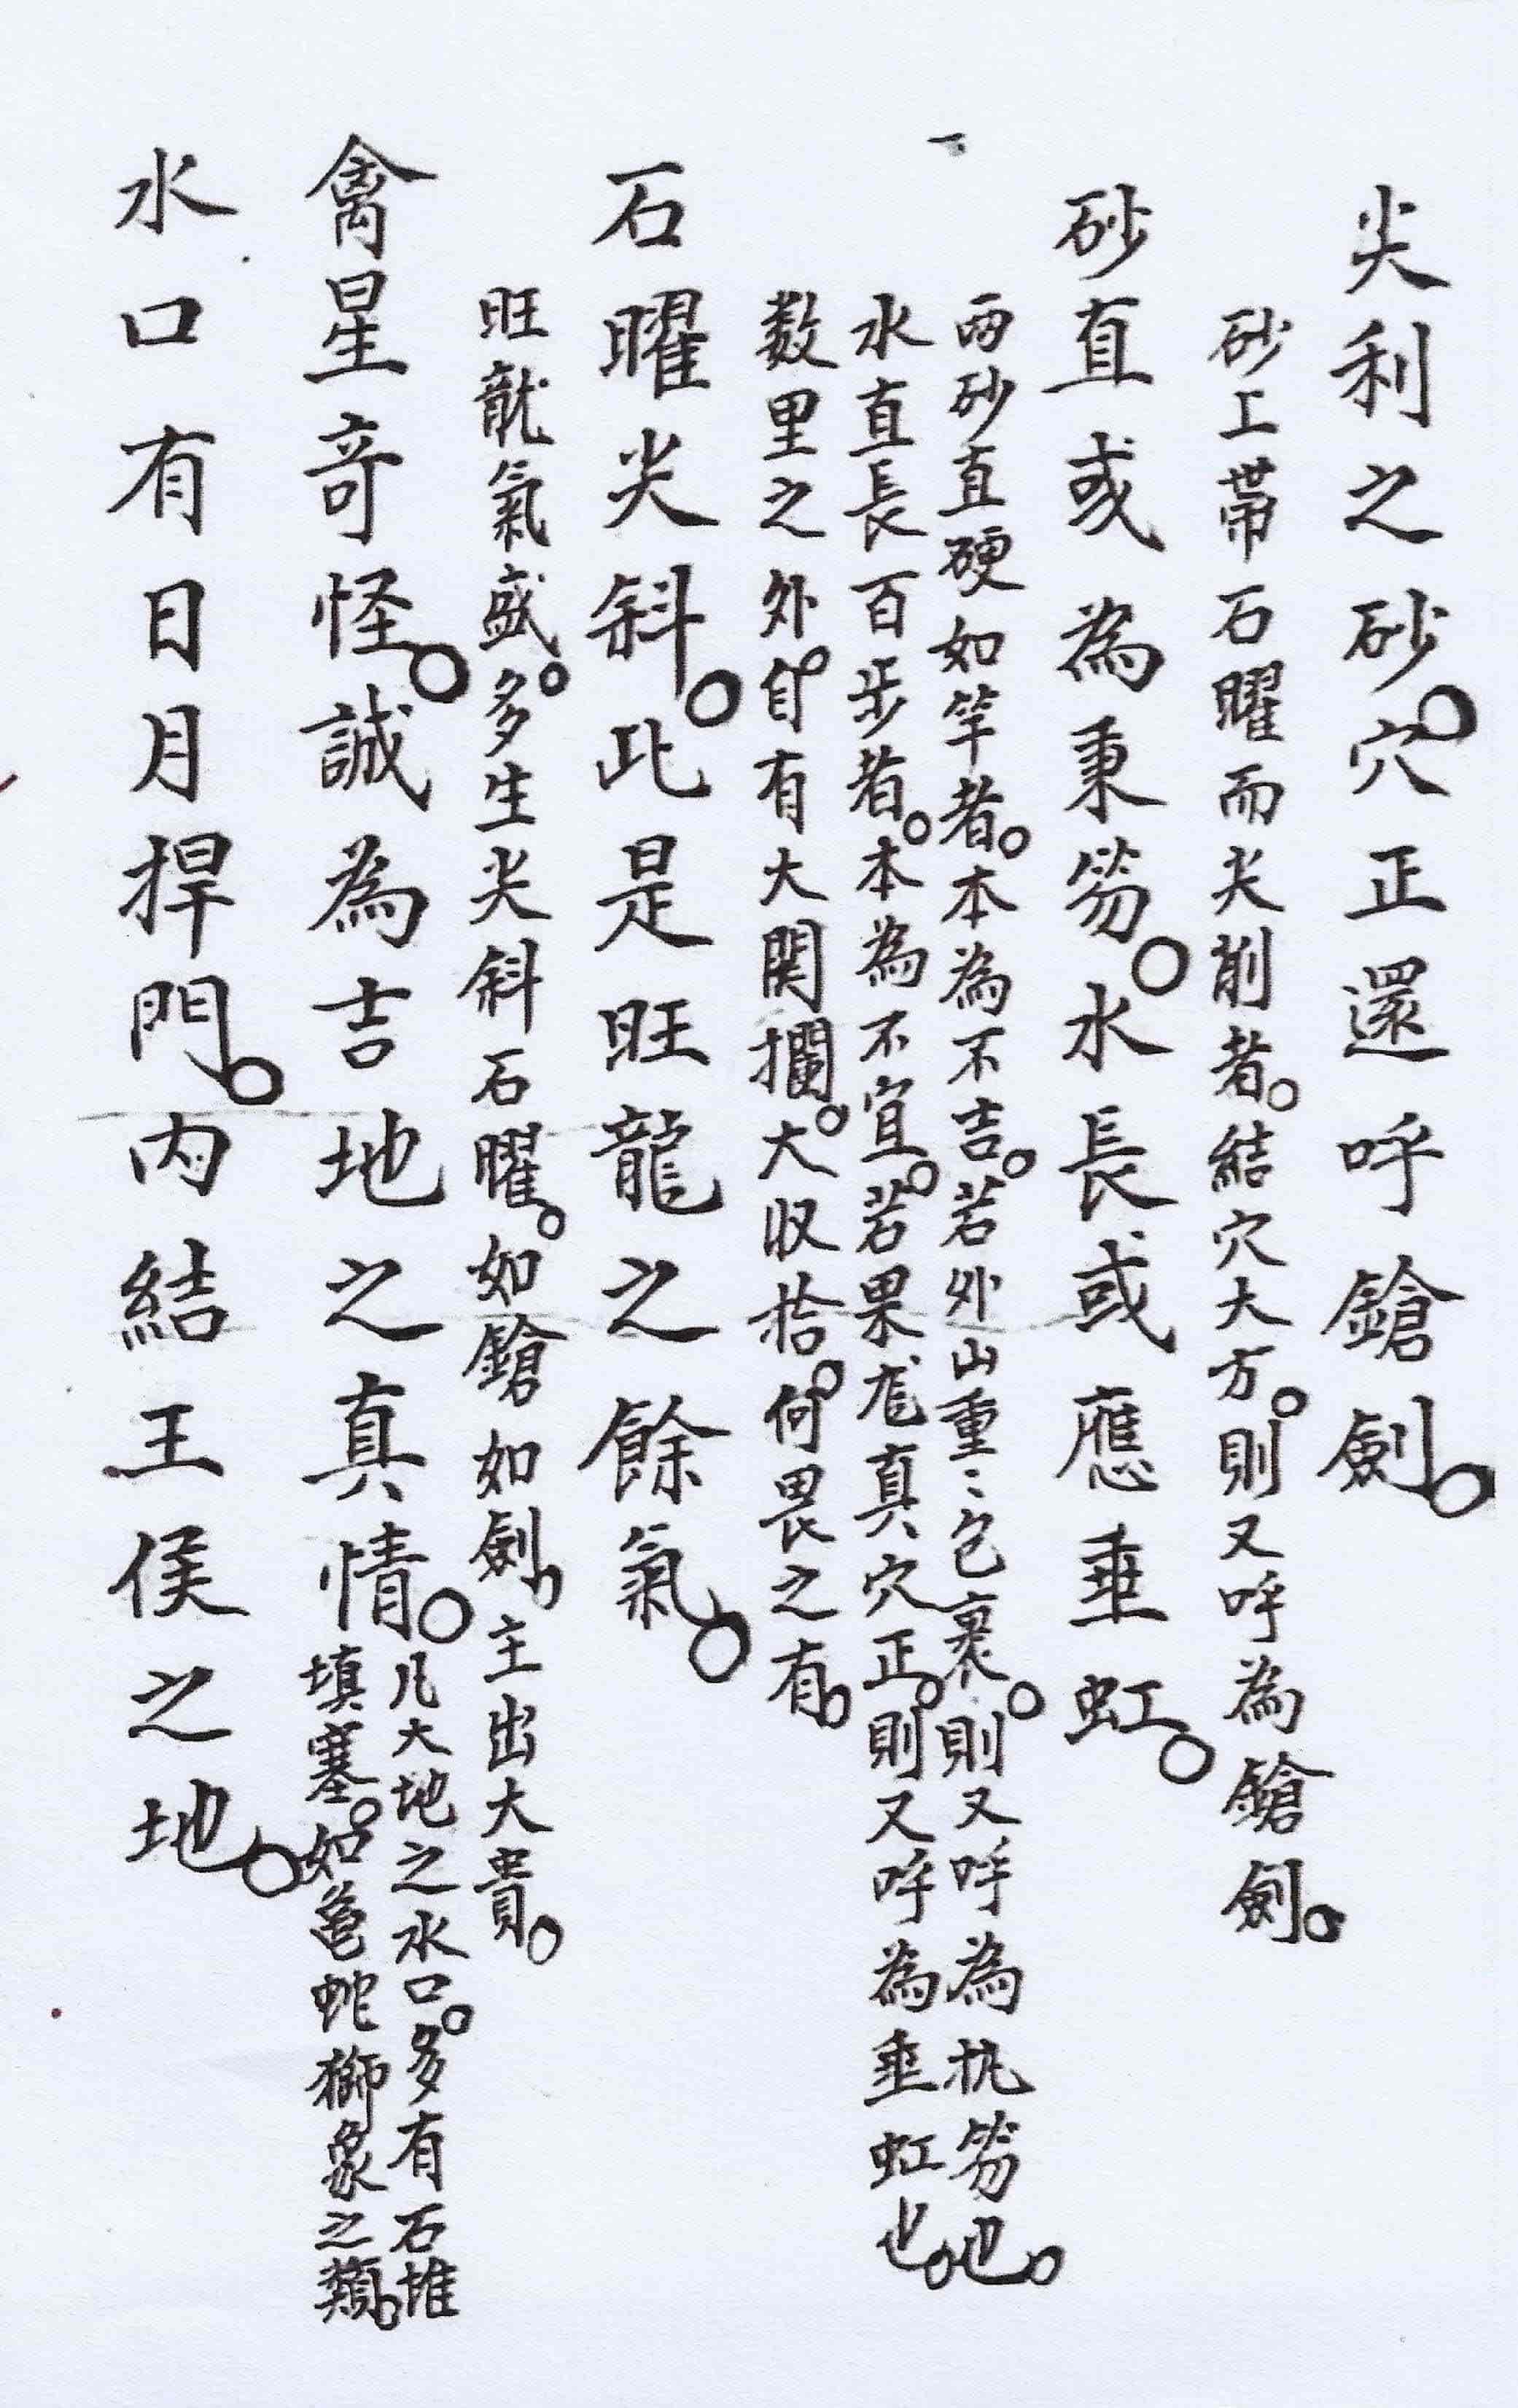 尖利之砂。穴正還呼鎗劍。
砂上帶石曜而尖削者。結穴大方。則又呼為鎗劍。
砂直或為秉笏。水長或應垂虹。
両砂直硬如竿者。本為不吉。若外山重〻包裹。則又呼為执笏也。
水直長百步者。本為不宜。若果龙真穴正。則又呼為垂虹也。
数里之外。自有大関攔。大収拾。何畏之有。
石曜尖斜。此是旺龍之餘氣。
旺龍氣盛。多生尖斜石曜。如鎗如劍。主出大貴。
禽星奇怪。誠為吉地之真情。
凡大地之水口。多有石堆
填塞。如龟蛇獅象之類。
水口有日月捍門。内結王侯之地。